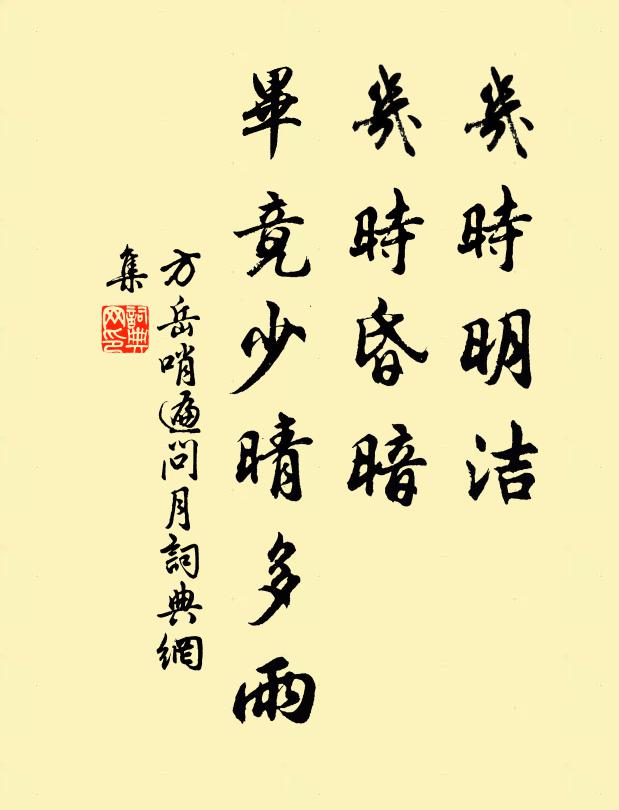 幾時明洁
幾時昏暗
畢竟少晴多雨
方岳哨遍問月詞典網
集
詞典
网印